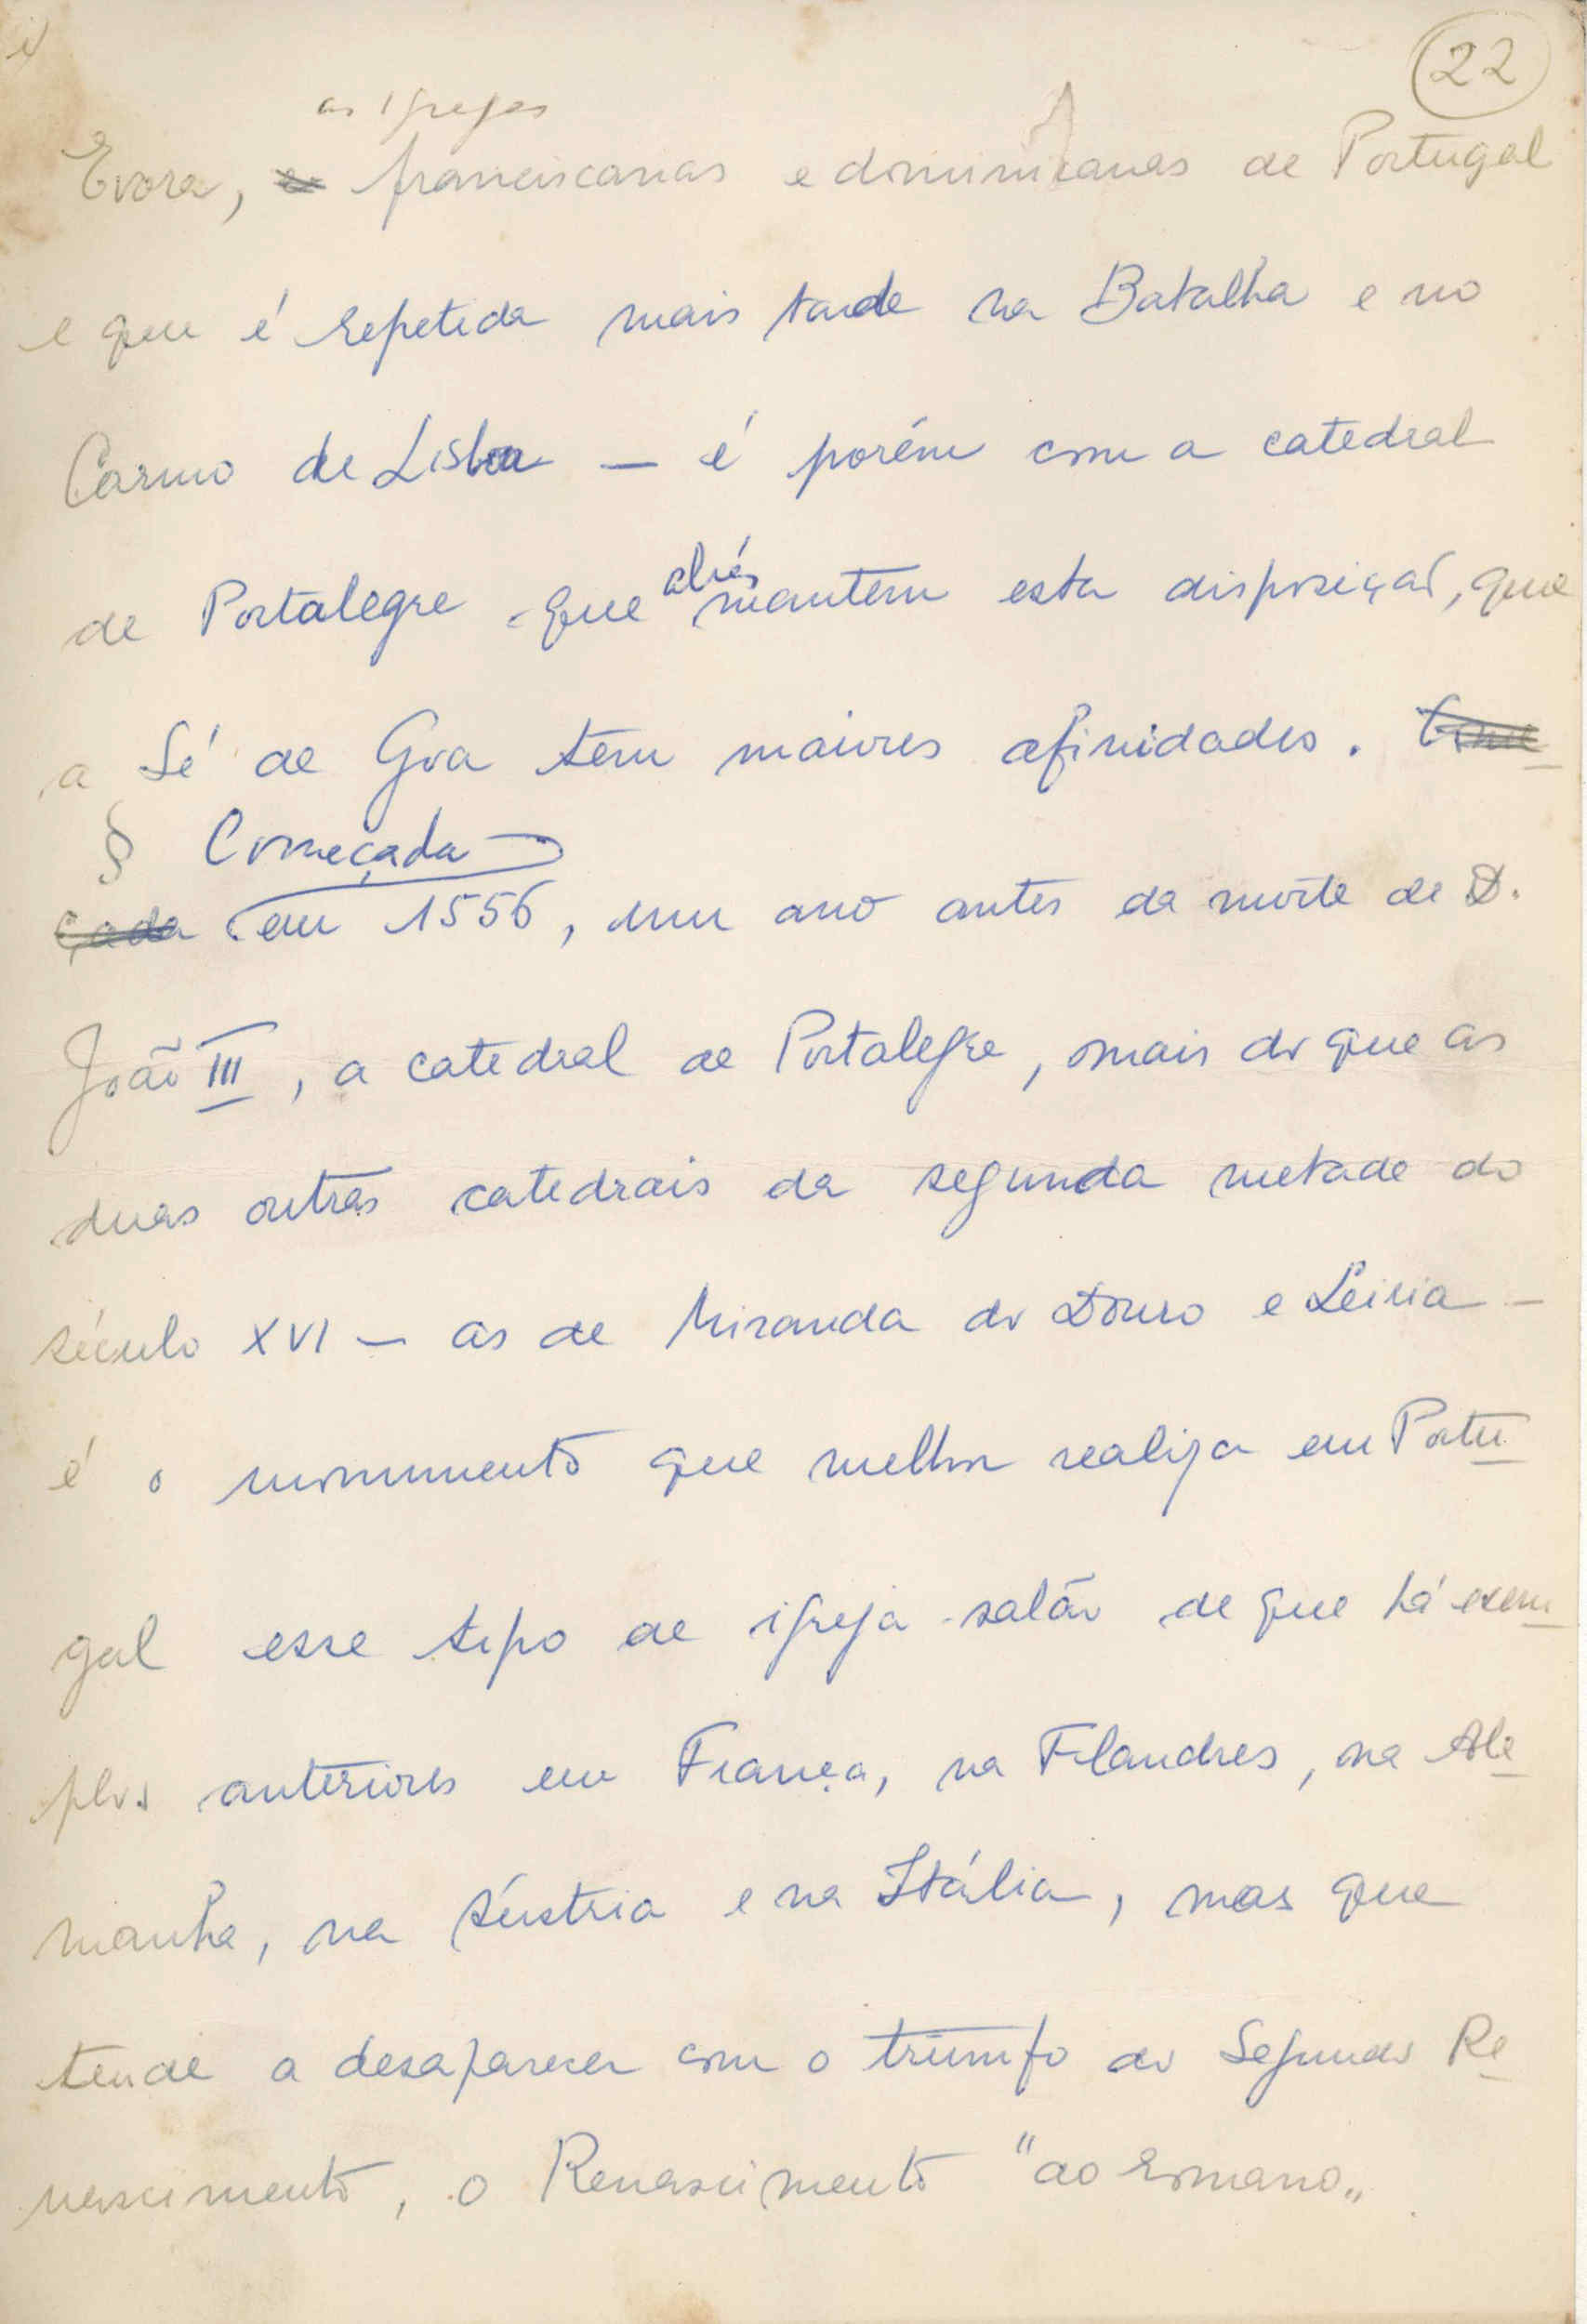 22
as igrejas
Evora, franciscanas e dominicanas de Portugal
e que é repetida mais tarde na Batalha e no
Carmo de Lisboa — é porém com a catedral
aliás
de Portalegre que mantem esta disposição, que
a Sé de Goa tem maiores afinidades. Come
§ Começada
çada em 1556, um ano antes da morte de D.
João III, a catedral de Portalegre, mais do que as
duas outras catedrais da segunda metade do
século XVI — as de Miranda do Douro e Leiria —
é o monumento que melhor realiza em Portu
gal esse tipo de igreja-salão de que há exem
plos anteriores em França, na Flandres, na Ale
manha, na Áustria e na Itália, mas que
tende a desaparecer com o triunfo do Segundo Re
nascimento, o Renascimento "ao romano„